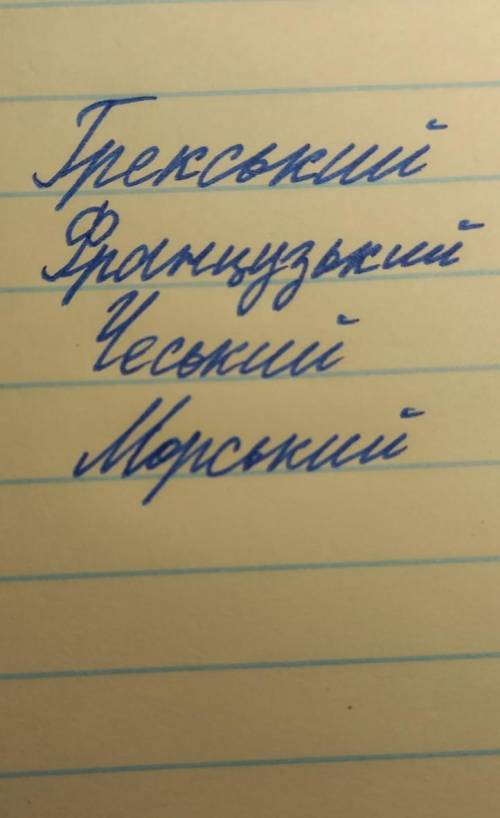 Грекський
Французький
Чеський
Морський